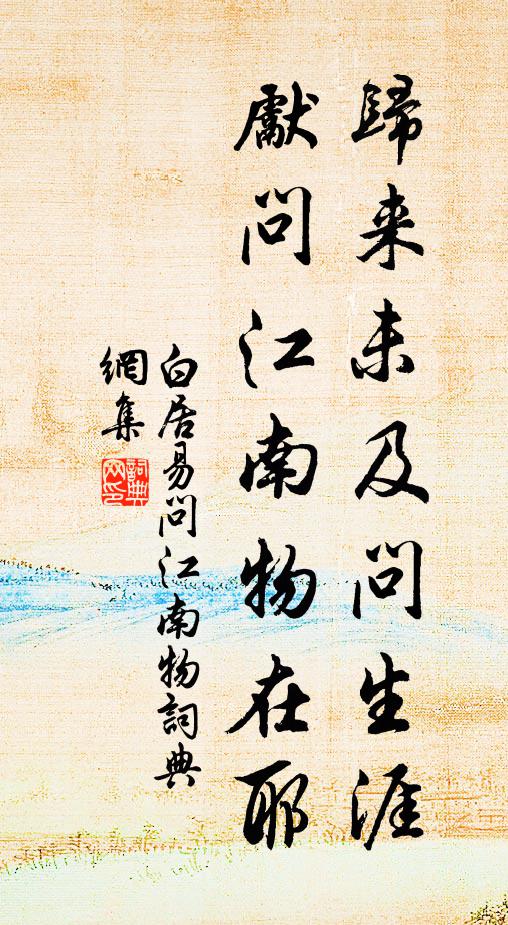 歸来未及問生涯
獻問江南物在耶
白居易問江南物詞典
網集
詞典
网印